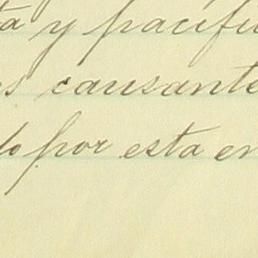 a y pacífi
s causante
do por esta en